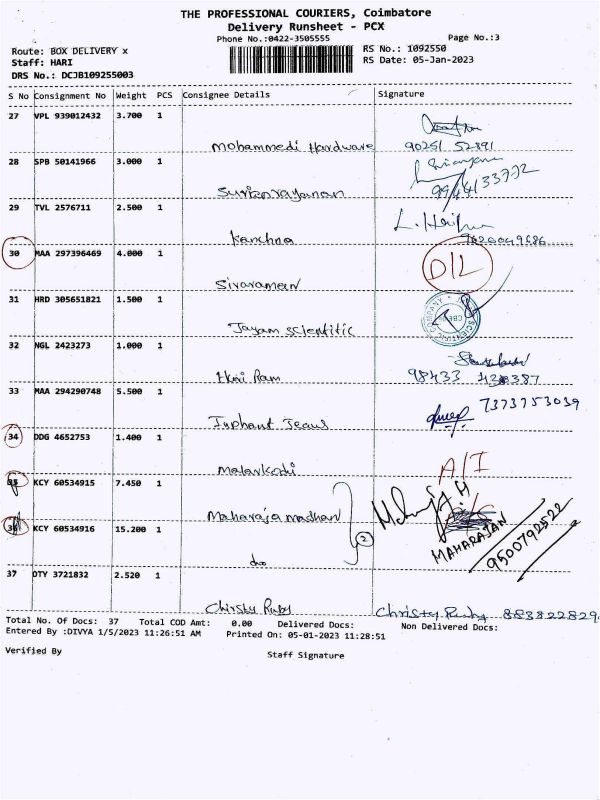 THE PROFESSIONAL COURIERS, Coimbatore
Delivery Runsheet - PCX
Phone No.:0422-3505555
Page No.:3
Route: BOX DELIVERY x
Staff: HARI
DRS No.: DCJB109255003
RS No.: 1092550
RS Date: 05-Jan-2023
S No Consignment No Weight PCS Consignee Details Signature
27 VPL 939012432 3.700 1
Mohammedi Hardware 90251 52891
28 SPB 50141966 3.000 1
Suriyanarayanan 9944133772
29 TVL 2576711 2.500 1
Kanchna
30 MAA 297396469 4.000 1 D/L
Sivaraman
31 HRD 305651821 1.500 1
Jayam Scientific
32 NGL 2423273 1.000 1
Hari Ram 98433
33 MAA 294290748 5.500 1 7373753039
34 DDG 4652753 1.400 1
Malarkodi A/I
35 KCY 60534915 7.450 1
Maharaja madhan
36 KCY 60534916 15.200 1 MAHARAJAN
do 2 9500792522
37 OTY 3721832 2.520 1
Chirsty Ruby Christy Ruby
Total No. Of Docs: 37 Total COD Amt: 0.00 Delivered Docs: Non Delivered Docs:
Entered By :DIVYA 1/5/2023 11:26:51 AM Printed On: 05-01-2023 11:28:51
Verified By Staff Signature